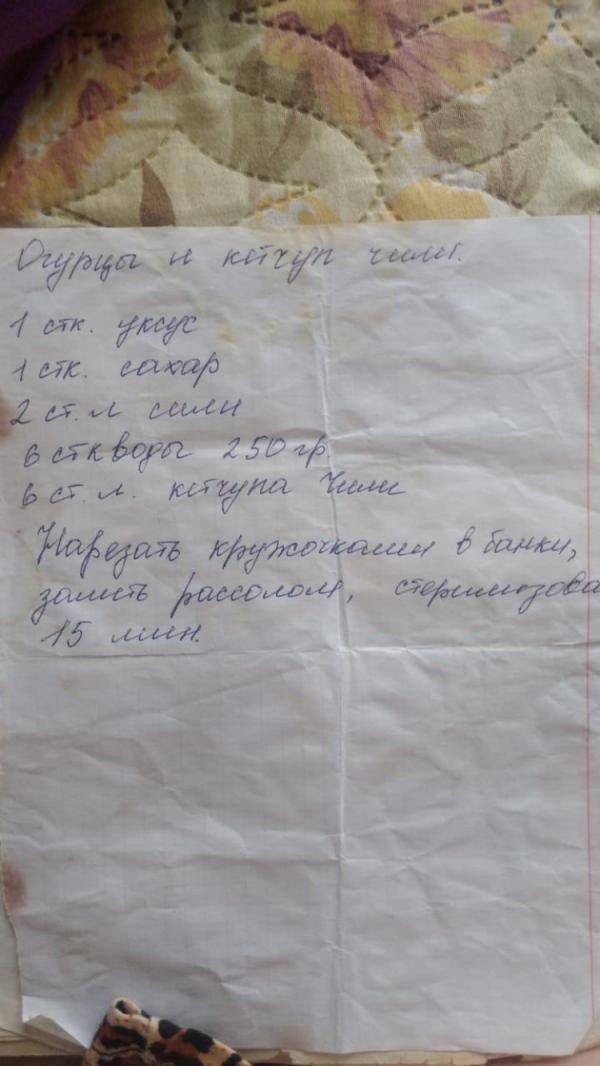 Огурцы и кетчуп чили.
1 стк. уксус
1 стк. сахар
2 ст.л соли
6 стк воды 250 гр.
6 ст.л. кетчупа Чили
Нарезать кружочками в банки,
залить рассолом, стерилизова
15 мин.